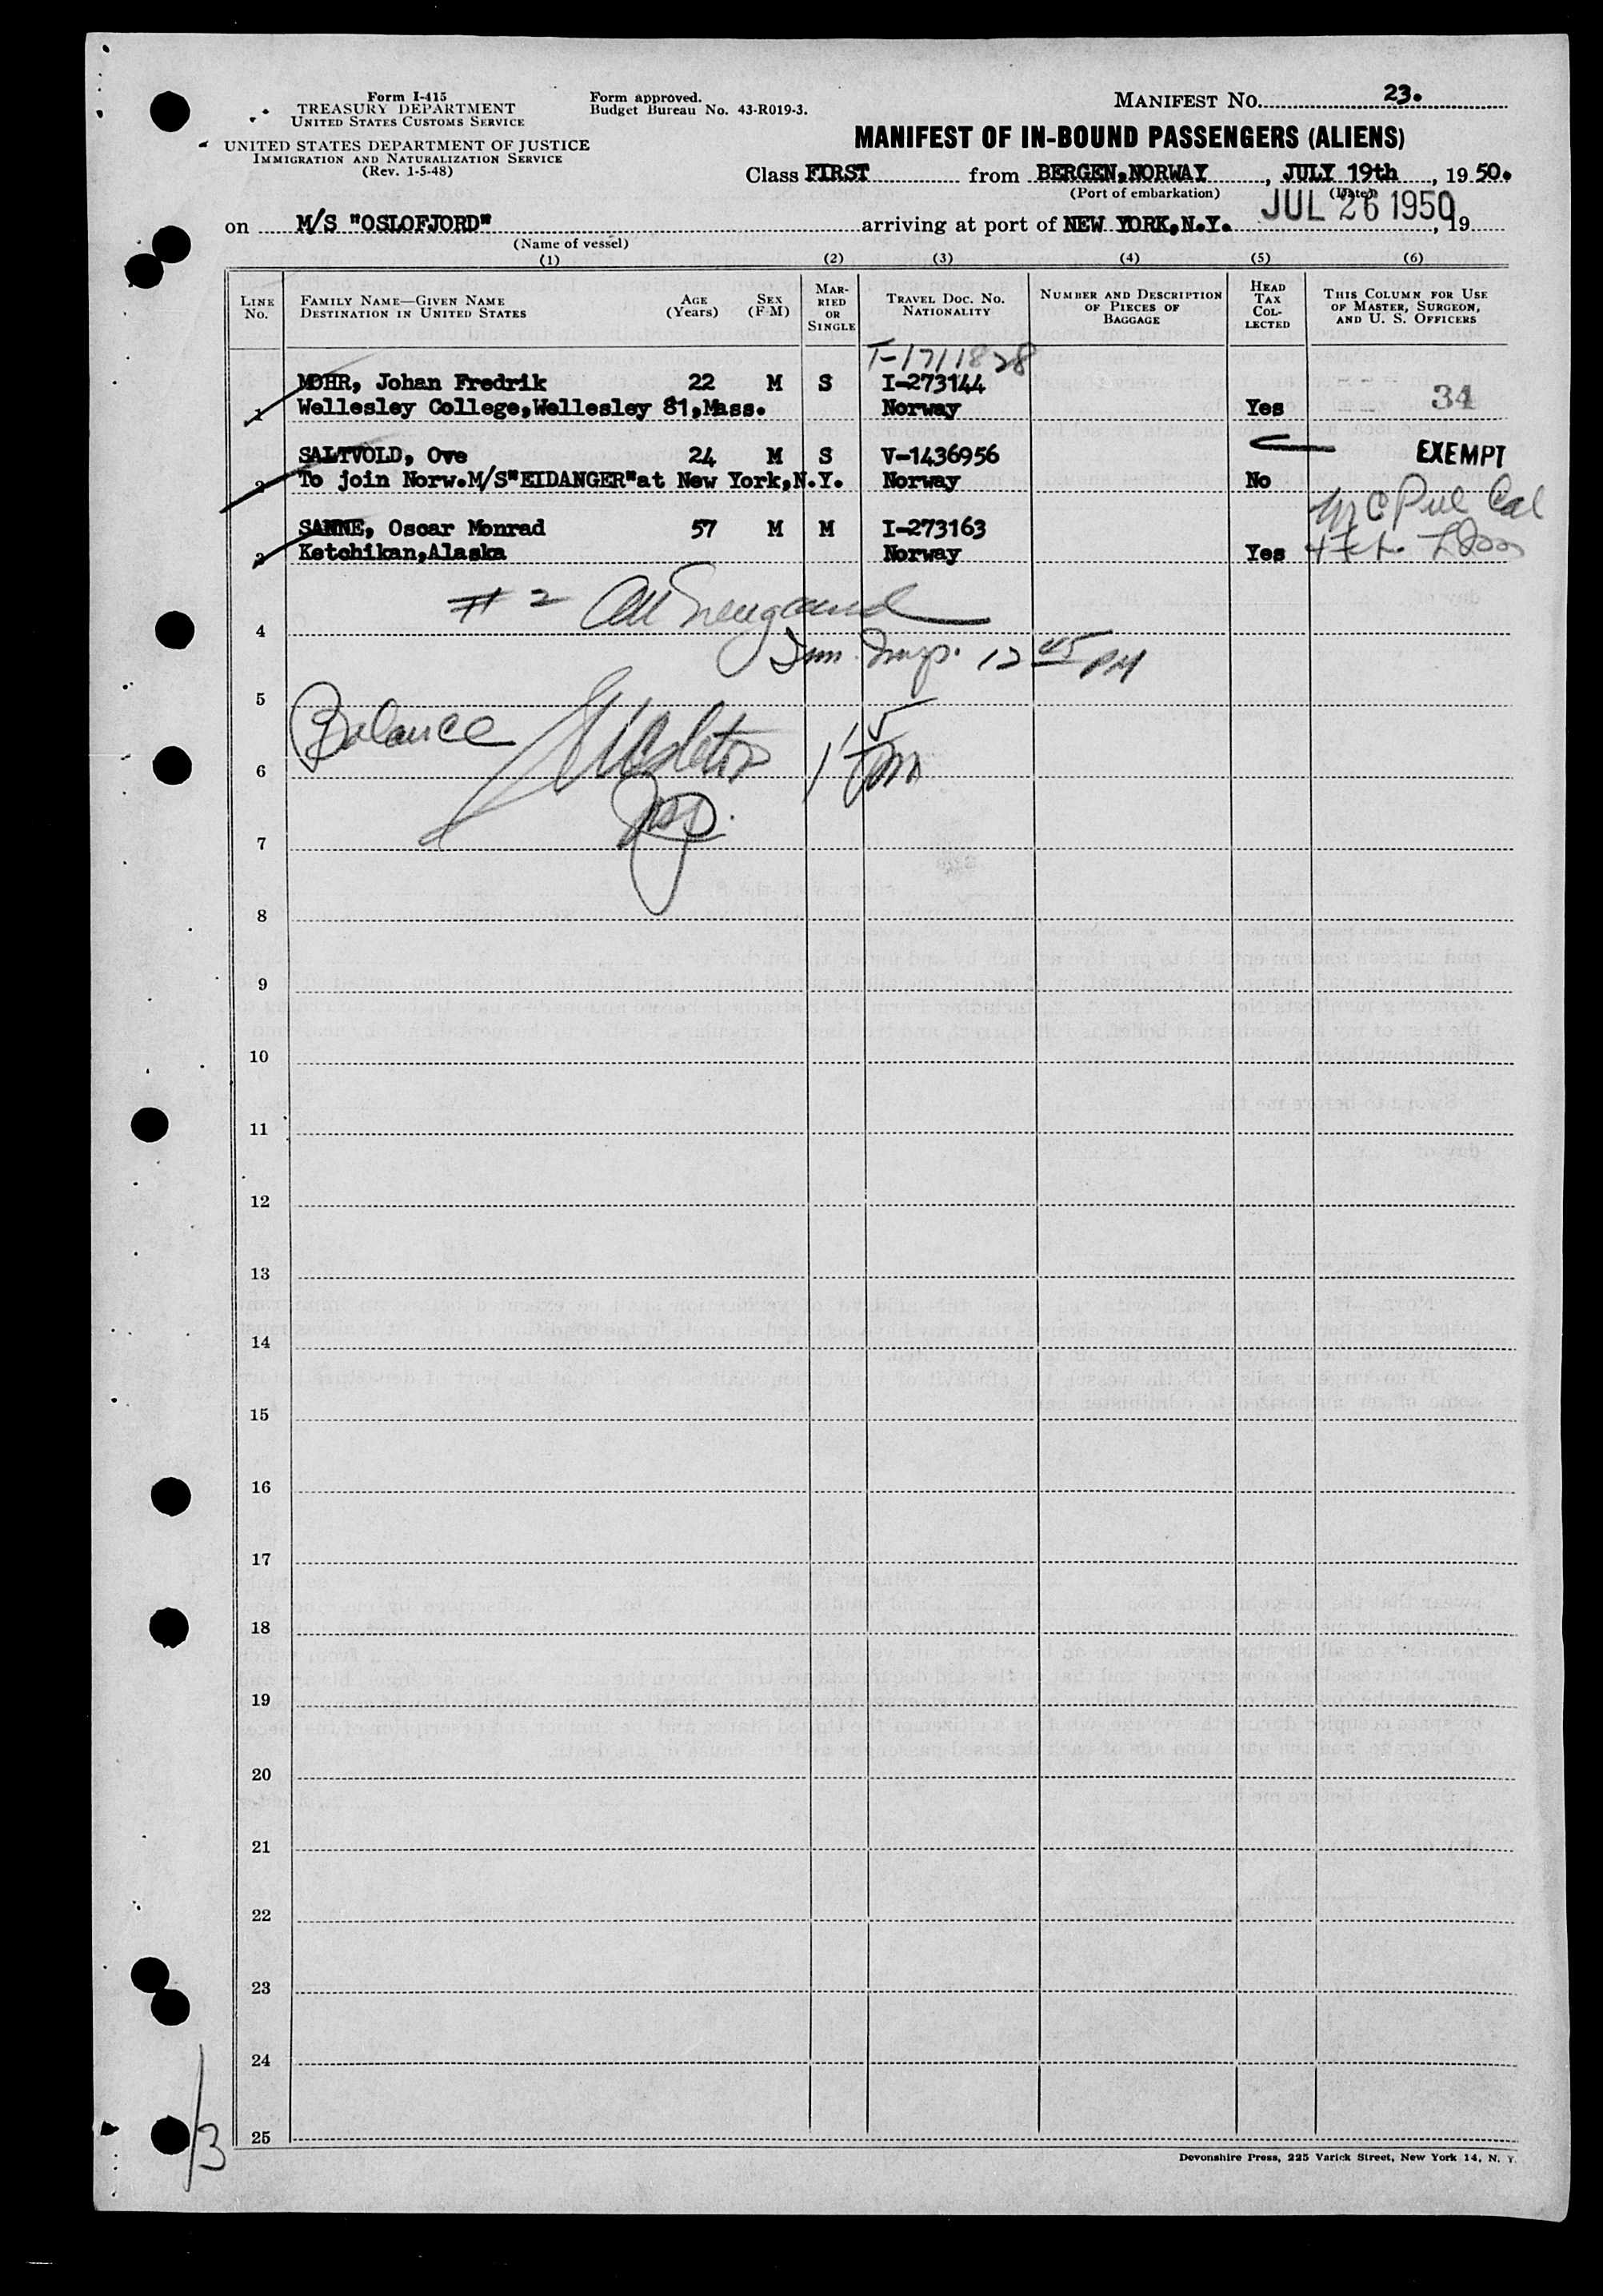 Form I-415
TREASURY DEPARTMENT
UNITED STATES CUSTOMS SERVICE
UNITED STATES DEPARTMENT OF JUSTICE
IMMIGRATION AND NATURALIZATION SERVICE
(Rev. 1-5-48)
Form approved.
Budget Bureau No. 43-R019-3.
MANIFEST NO. 23.
MANIFEST OF IN-BOUND PASSENGERS (ALIENS)
Class FIRST from BERGEN,NORWAY, JULY 19th, 19 50.
(Port of embarkation) (Date)
on M/S "OSLOFJORD" arriving at port of NEW YORK,N.Y. JUL 26 1950, 19
(Name of vessel)
(1) (2) (3) (4) (5) (6)
LINE NO. FAMILY NAME—GIVEN NAME DESTINATION IN UNITED STATES AGE (Years) SEX (F-M) MARRIED OR SINGLE TRAVEL DOC. NO. NATIONALITY NUMBER AND DESCRIPTION OF PIECES OF BAGGAGE HEAD TAX COLLECTED THIS COLUMN FOR USE OF MASTER, SURGEON, AND U. S. OFFICERS
T-1711828
MOHR, Johan Fredrik 22 M S I-273144 34
1 Wellesley College,Wellesley 81,Mass. Norway Yes
SALTVOLD, Ove 24 M S V-1436956 EXEMPT
2 To join Norw.M/S"EIDANGER"at New York,N.Y. Norway No
SANNE, Oscar Monrad 57 M M I-273163
3 Ketchikan,Alaska Norway Yes
# 2
4
Imm. Insp. 12 45 PM
5
Balance 1 15 pm
6
Insp.
7
8
9
10
11
12
13
14
15
16
17
18
19
20
21
22
23
24
25
13
Devonshire Press, 225 Varick Street, New York 14, N. Y.